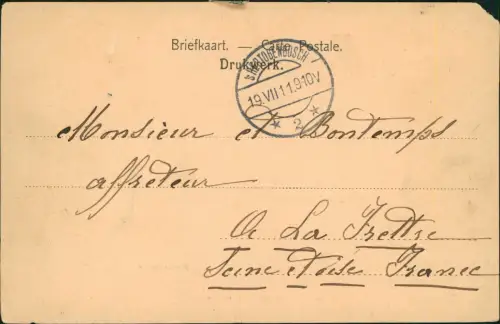 Briefkaart. — Carte Postale.
Drukwerk.
'SHERTOGENBOSCH
19.VII 11.9-10V
2
Monsieur et Bontemps
affreteur
A La Frettre
Seine et oise France